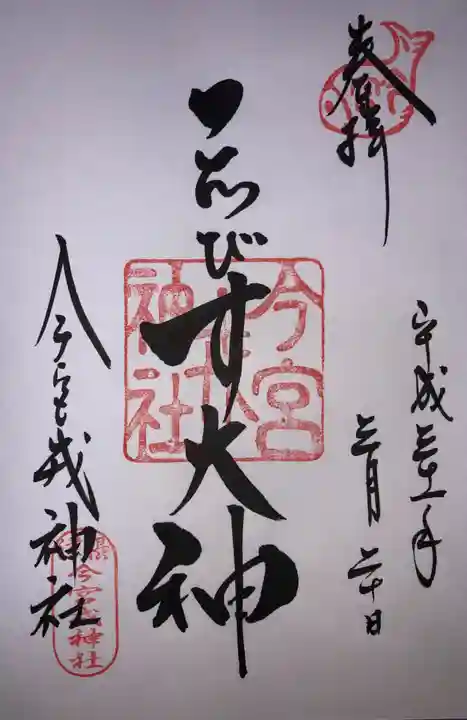 奉拝
平成三十一年
三月二十日
ゑびす大神
今宮戎神社
今宮
戎
神社
今宮戎神社